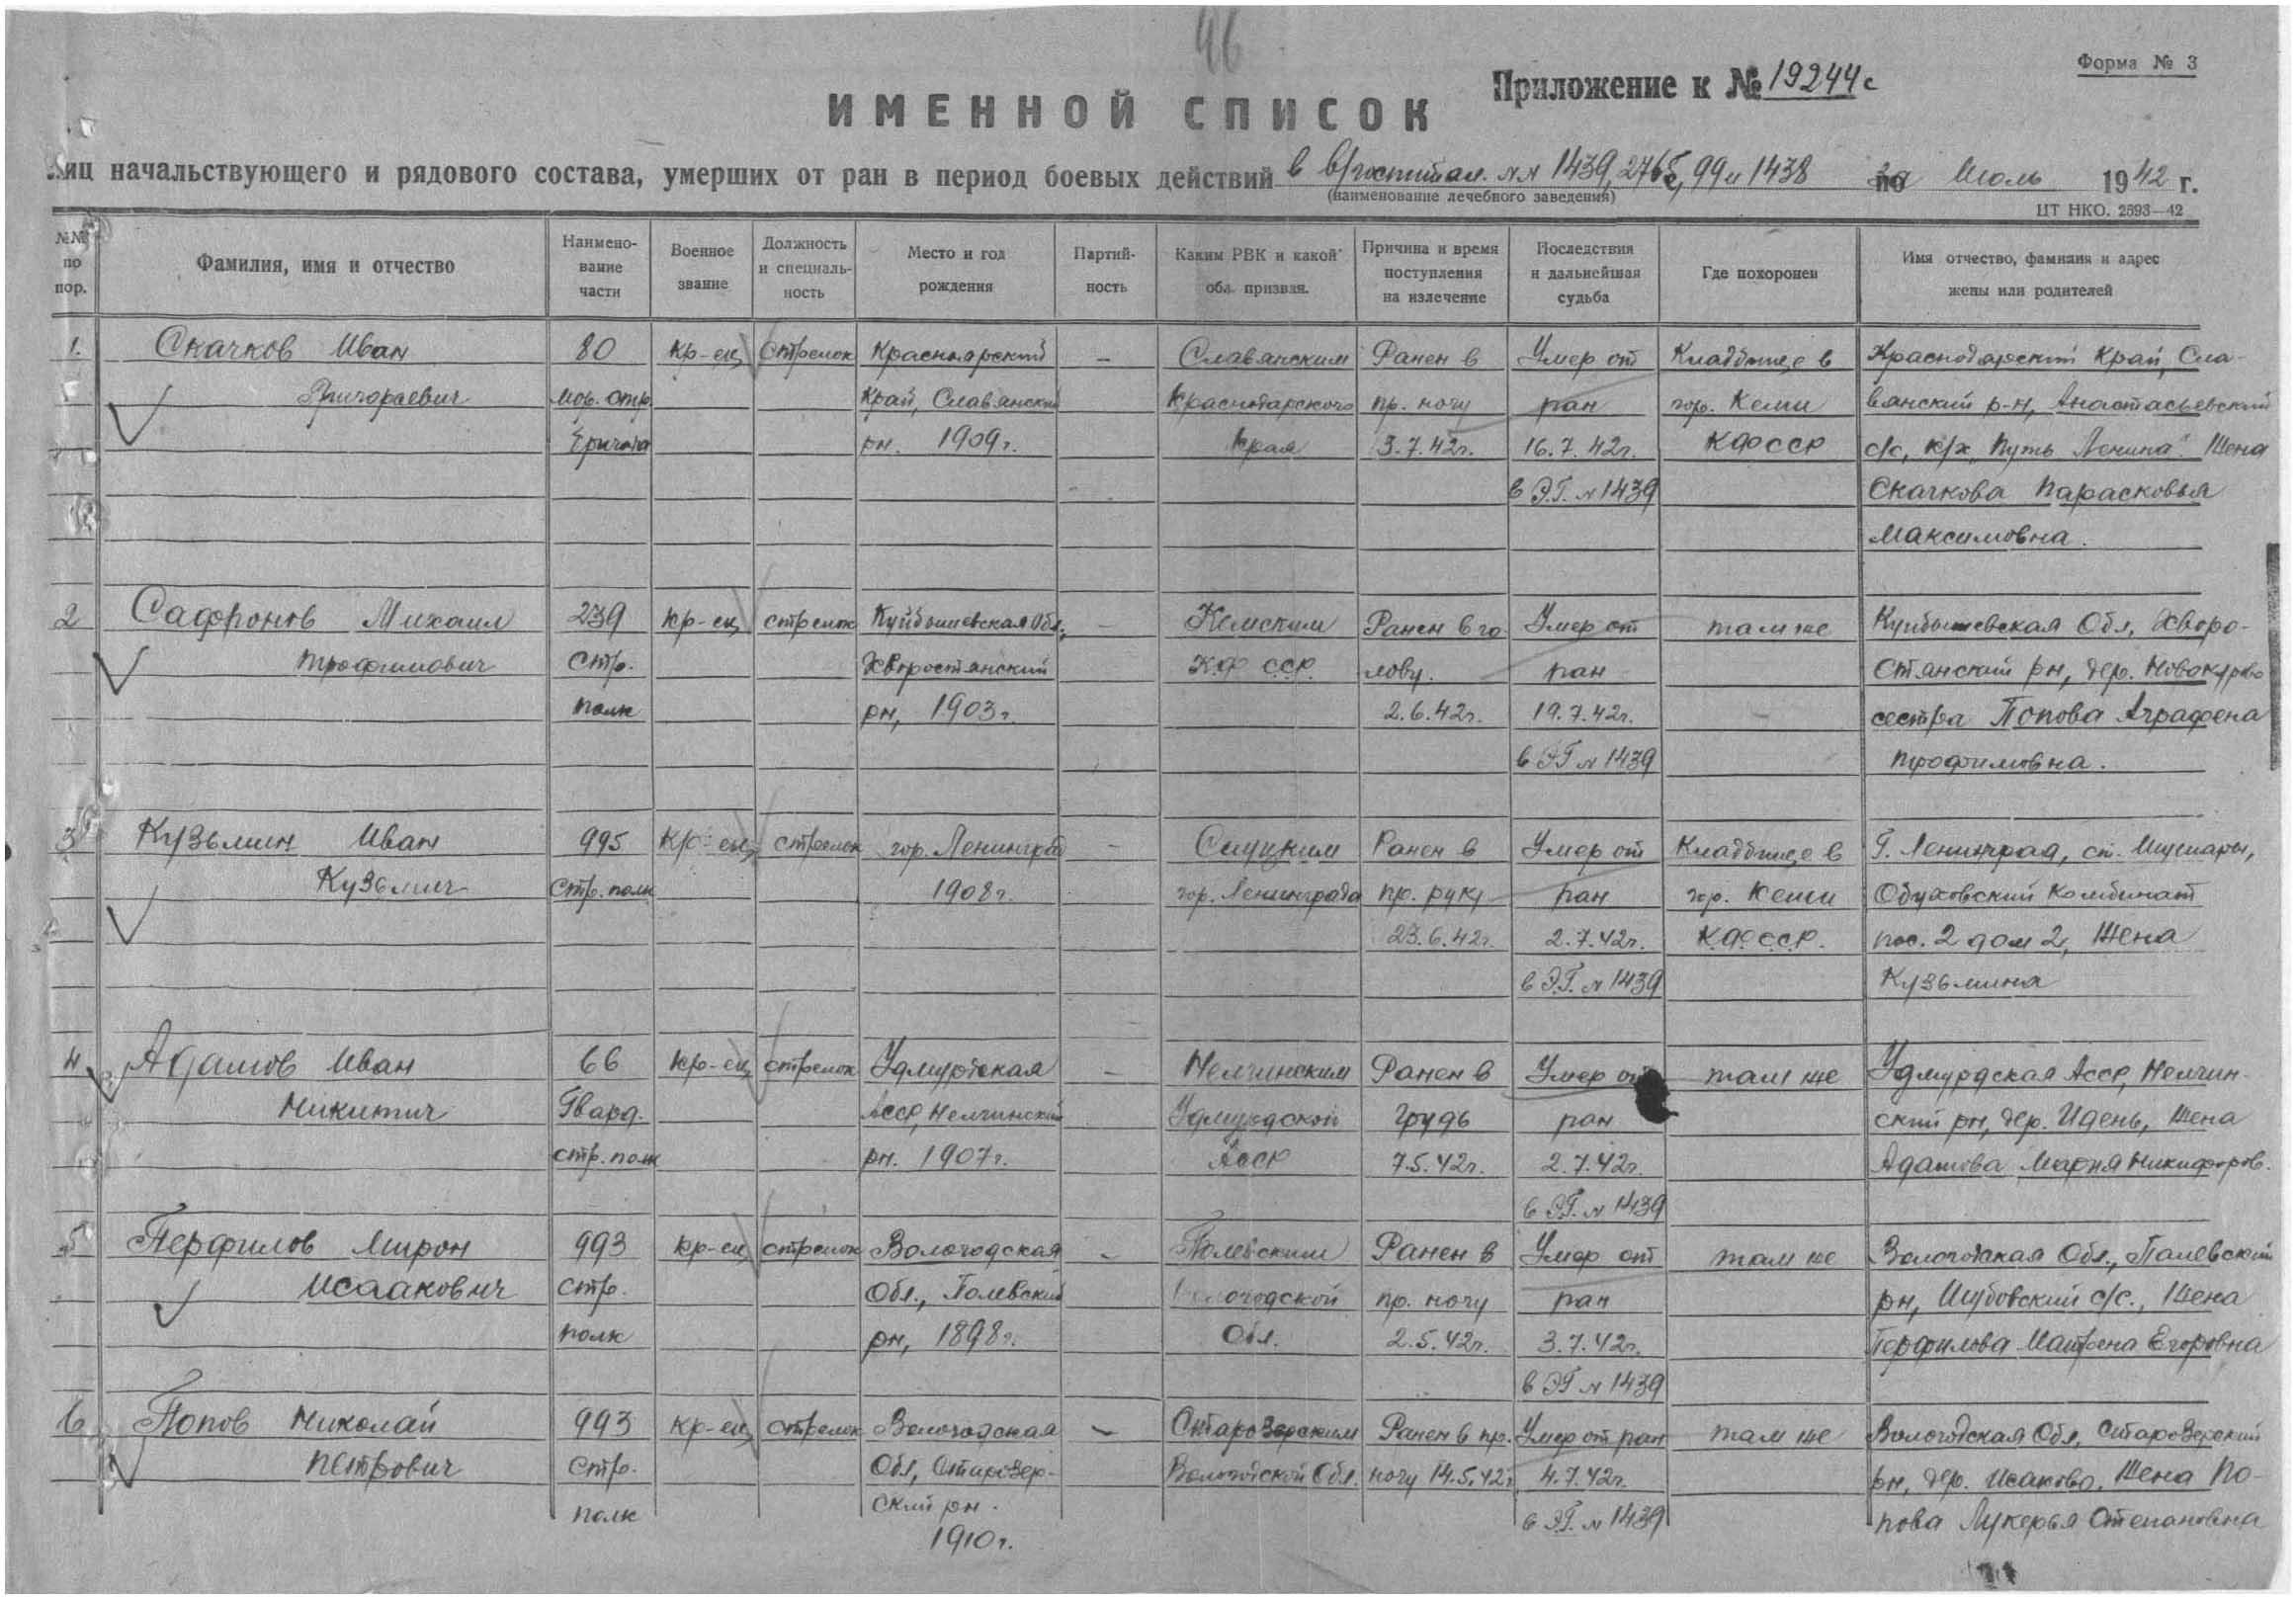 46
Форма № 3
Приложение к № 19244с
ИМЕННОЙ СПИСОК
лиц начальствующего и рядового состава, умерших от ран в период боевых действий в в/госпитал. №№ 1439, 2765, 99 и 1438 за Июль 1942 г.
(наименование лечебного заведения)
ЦТ НКО. 2593—42
№№ по пор.
Фамилия, имя и отчество
Наимено-вание части
Военное звание
Должность и специаль-ность
Место и год рождения
Партий-ность
Каким РВК и какой обл. призван.
Причина и время поступления на излечение
Последствия и дальнейшая судьба
Где похоронен
Имя отчество, фамилия и адрес жены или родителей
1. Скачков Иван 80 Кр-ец Стрелок Красноярский – Славянским Ранен в Умер от Кладбище в Краснодарский Край, Сла-
Григорьевич мор. стр. Край, Славянский Краснодарского пр. ногу ран гор. Кеми вянский р-н, Анастасьевский
бригада рн. 1909г. Края 3.7.42г. 16.7.42г. КФССР с/с, к/х „Путь Ленина". Жена
в Э.Г. № 1439 Скачкова Парасковья
Максимовна.
2 Сафронов Михаил 239 Кр-ец стрелок Куйбышевская Обл., – Кемским Ранен в го- Умер от там же Куйбышевская Обл, Хворо-
Трофимович стр. Хворостянский КФССР лову. ран стянский рн, дер.
полк рн, 1903г. 2.6.42г. 19.7.42г. сестра Попова Аграфена
в ЭГ № 1439 Трофимовна.
3 Кузьмин Иван 995 Кр-ец стрелок гор. Ленинград – Слуцким Ранен в Умер от Кладбище в Г. Ленинград, ст. Шушары,
Кузьмич Стр. полк 1908г. гор. Ленинграда пр. руку ран гор. Кеми Обуховский Комбинат
23.6.42г. 2.7.42г. К.Ф.С.С.Р. пос. 2 дом 2, Жена
в Э.Г. № 1439 Кузьмина
4 Адамов Иван 66 Кр-ец стрелок Удмуртская – Нелчинским Ранен в Умер от там же Удмурдская Асср, Нелчин-
Никитич Гвард. Асср, Нелчинский Удмурдской грудь ран ский рн, дер. Идень, Жена
стр. полк рн. 1907г. Асср 7.5.42г. 2.7.42г. Адамова Мария Никифоров.
в Э.Г. № 1439
5 Перфилов Мирон 993 Кр-ец стрелок Вологодская – Ранен в Умер от там же Вологодская Обл.,
Исаакович стр. Обл., Вологодской пр. ногу ран рн, с/с., Жена
полк рн, 1898г. Обл. 2.5.42г. 3.7.42г. Перфилова Матрена Егоровна
в ЭГ № 1439
6 Попов Николай 993 Кр-ец стрелок Вологодская – Ранен в пр. Умер от ран там же Вологодская Обл,
Петрович стр. Обл, Вологодской Обл. ногу 14.5.42г. 4.7.42г. рн, дер. Исаково. Жена По-
полк ский рн. в Э.Г. № 1439 пова Лукерья Степановна
1910г.